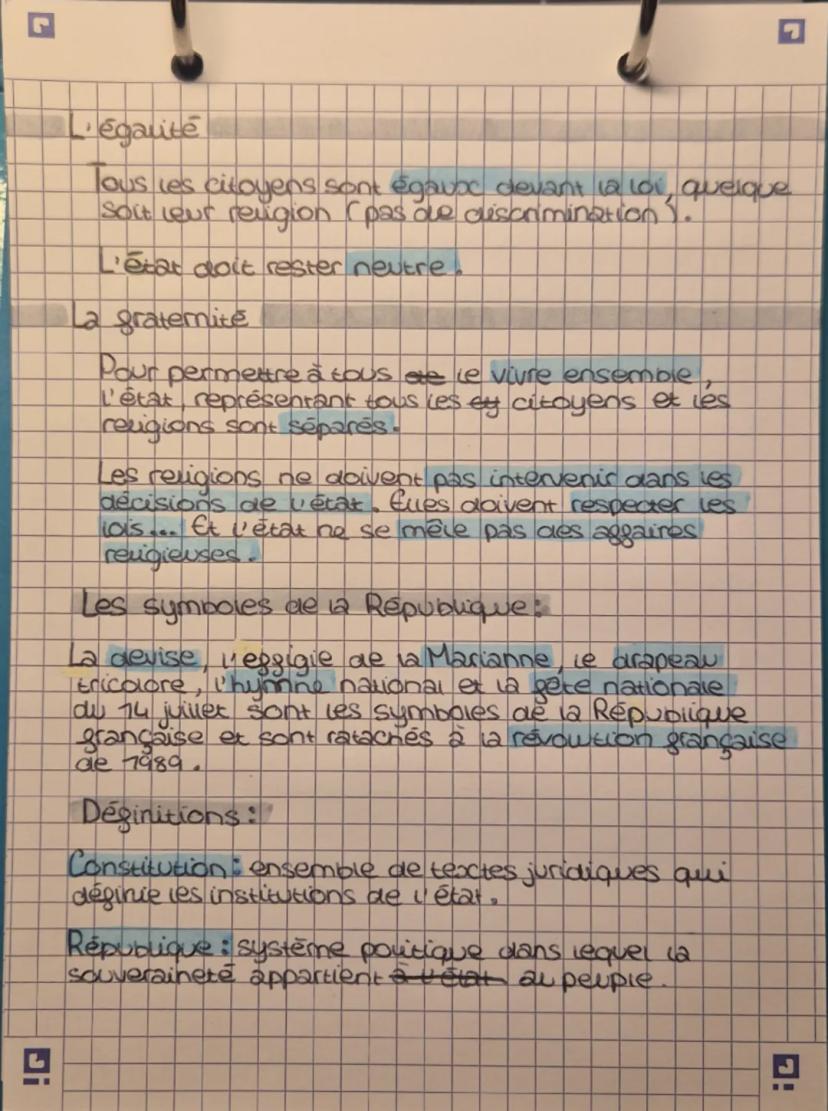 L'égalité
Tous les citoyens sont égaux devant la loi, quelque
soit leur religion (pas de discrimination).
L'état doit rester neutre.
La fraternité
Pour permettre à tous de le vivre ensemble,
l'état, représentant tous les et citoyens et les
religions sont séparés.
Les religions ne doivent pas intervenir dans les
décisions de l'état. Elles doivent respecter les
lois... Et l'état ne se mêle pas des affaires
religieuses.
Les symboles de la République :
La devise, l'effigie de la Marianne, le drapeau
tricolore, l'hymne national et la fête nationale
du 14 juillet sont les symboles de la République
française et sont ratachés à la révolution française
de 1989.
Définitions :
Constitution : ensemble de textes juridiques qui
définie les institutions de l'état.
République : système politique dans lequel la
souveraineté appartient à l'état au peuple.